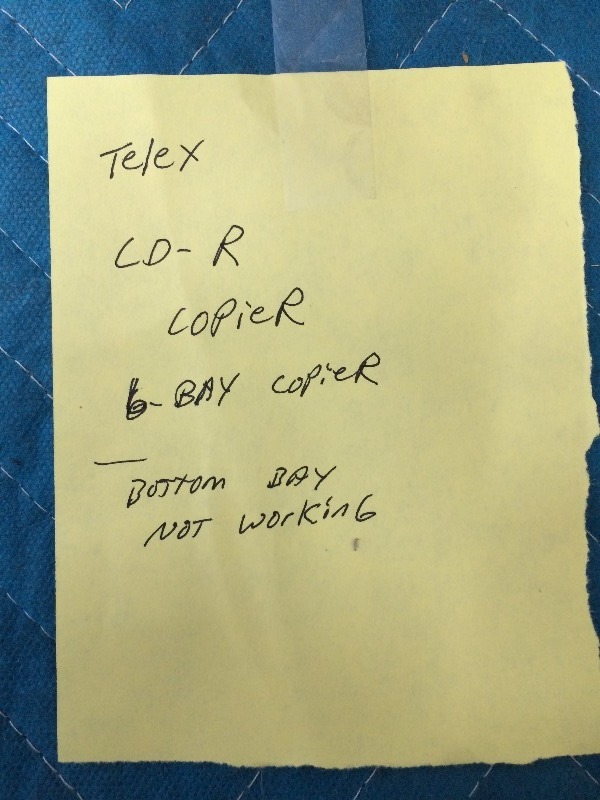 Telex
CD-R
COPieR
6-BAY COPieR
BOTTOM BAY
NOT WORKinG